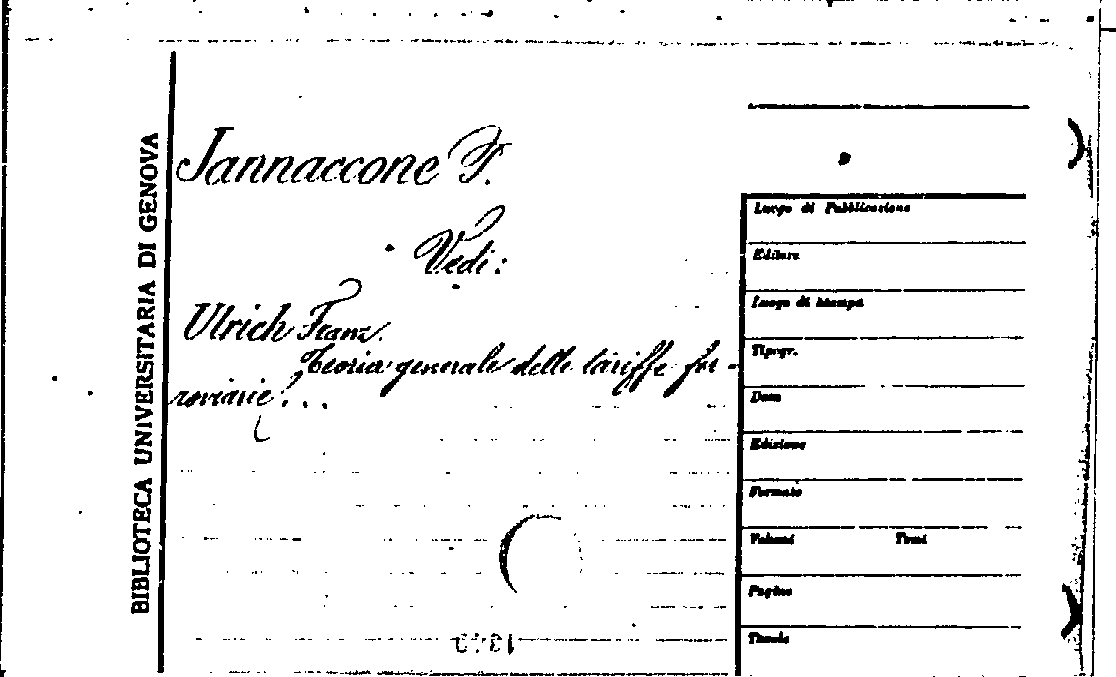 BIBLIOTECA UNIVERSITARIA DI GENOVA
Jannaccone P.
Vedi:
Ulrich Franz.
Teoria generale delle tariffe fer-
roviarie...
Luogo di Pubblicazione
Editore
Luogo di stampa
Tipogr.
Data
Edizione
Formato
Volumi Tomi
Pagine
Tavole